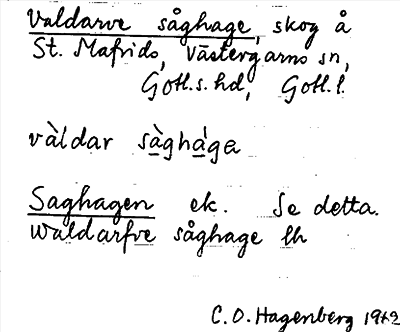 Valdarve såghage, skog å
St. Mafrids, Västergarns sn,
Gotl.s.hd, Gotl.l.
vàldar sàghàge
Saghagen ek. Se detta.
Waldarfve såghage lh
C. O. Hagenberg